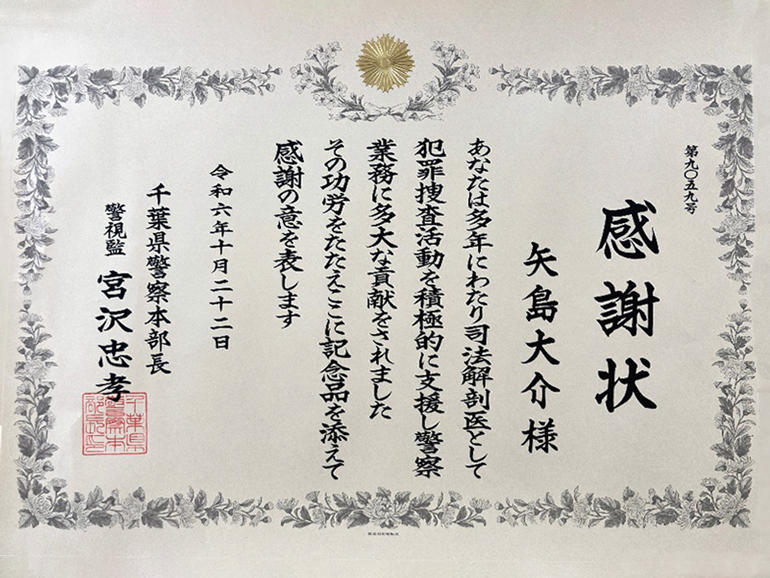 第九〇五九号
感謝状
矢島大介様
あなたは多年にわたり司法解剖医として
犯罪捜査活動を積極的に支援し警察
業務に多大な貢献をされました
その功労をたたえここに記念品を添えて
感謝の意を表します
令和六年十月二十二日
千葉県警察本部長
警視監 宮沢忠孝
千葉県警察本部長印